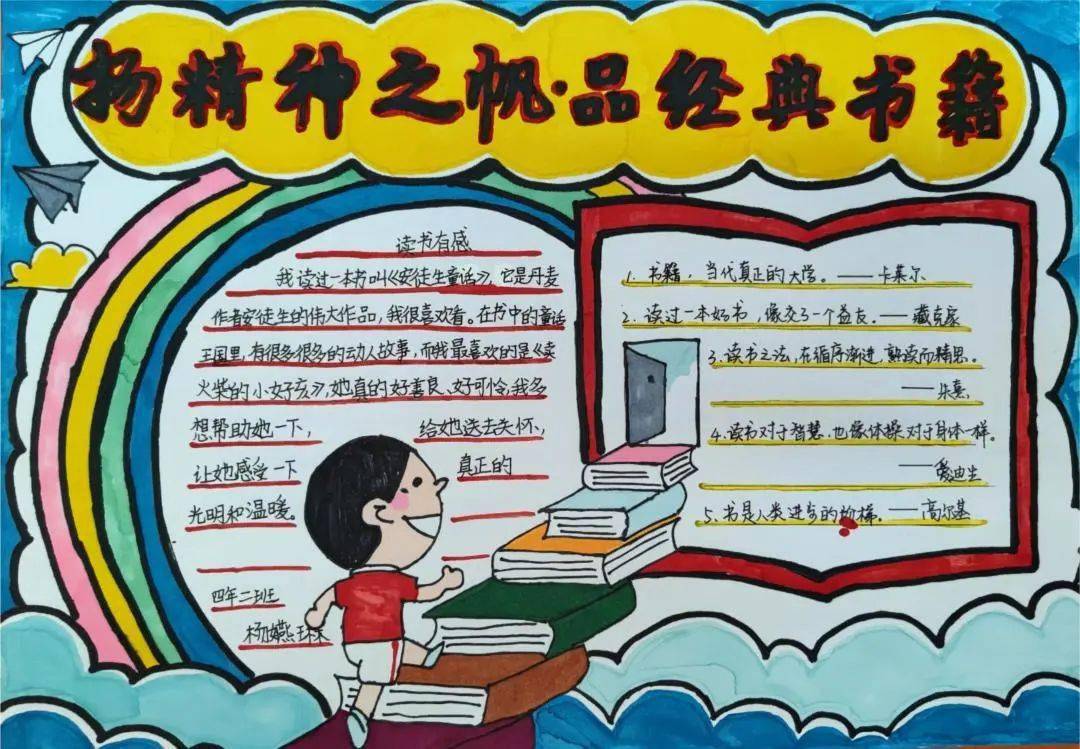 扬精神之帆·品经典书籍
读书有感
我读过一本书叫《安徒生童话》,它是丹麦
作者安徒生的伟大作品,我很喜欢看。在书中的童话
王国里,有很多很多的动人故事,而我最喜欢的是《卖
火柴的小女孩》,她真的好善良、好可怜,我多
想帮助她一下,给她送去关怀,
让她感受一下真正的
光明和温暖
四年二班
杨嬿
1. 书籍,当代真正的大学。——卡莱尔
2. 读过一本好书,像交了一个益友。——臧克家
3. 读书之法,在循序渐进,熟读而精思。
——朱熹
4. 读书对于智慧,也像体操对于身体一样。
——爱迪生
5. 书是人类进步的梯。——高尔基